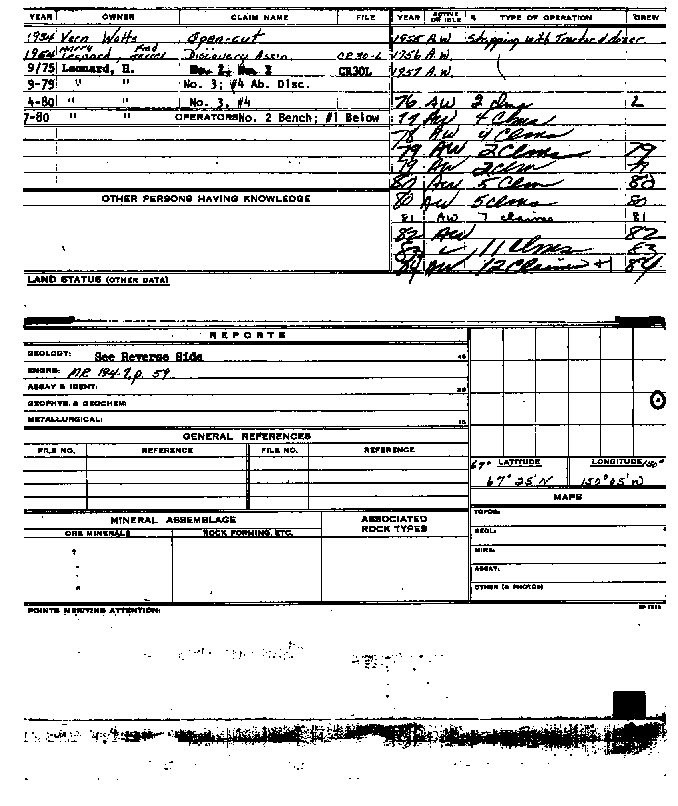 YEAR OWNER CLAIM NAME FILE YEAR ACTIVE OR IDLE % TYPE OF OPERATION CREW
1934 Vern Watts Open-cut 1955 A.W. Stripping with Tractor & dozer
1954 Harry Leonard, Fred Discovery Assn. CR 30-L 1956 A.W.
9/75 Leonard, H. No. 2, No. 3 CR30L 1957 A.W.
9-79 " " No. 3; #4 Ab. Disc.
4-80 " " No. 3, #4 76 AW 2 clms 2
7-80 " " OPERATORS No. 2 Bench; #1 Below 77 AW 4 Clms
78 AW 4 Clms
79 AW 2 Clms 79
79 AW 2 clm
80 AW 5 Clm 80
OTHER PERSONS HAVING KNOWLEDGE 80 AW 5 clms 80
81 AW 7 claims 81
82 AW 82
83 11 Clms 83
84 AW 12 Claims +1 84
LAND STATUS (OTHER DATA)
REPORTS
GEOLOGY: See Reverse Side
ENGRG: MR 194-7, p. 59
ASSAY & IDENT:
GEOPHYS. & GEOCHEM:
METALLURGICAL:
GENERAL REFERENCES
FILE NO. REFERENCE FILE NO. REFERENCE
67° LATITUDE LONGITUDE 150°
67° 25' N 150° 05' W
MAPS
MINERAL ASSEMBLAGE ASSOCIATED ROCK TYPES
ORE MINERALS ROCK FORMING, ETC.
TOPOG:
GEOL:
MINE:
ASSAY:
OTHER (& PHOTOS)
POINTS MERITING ATTENTION: